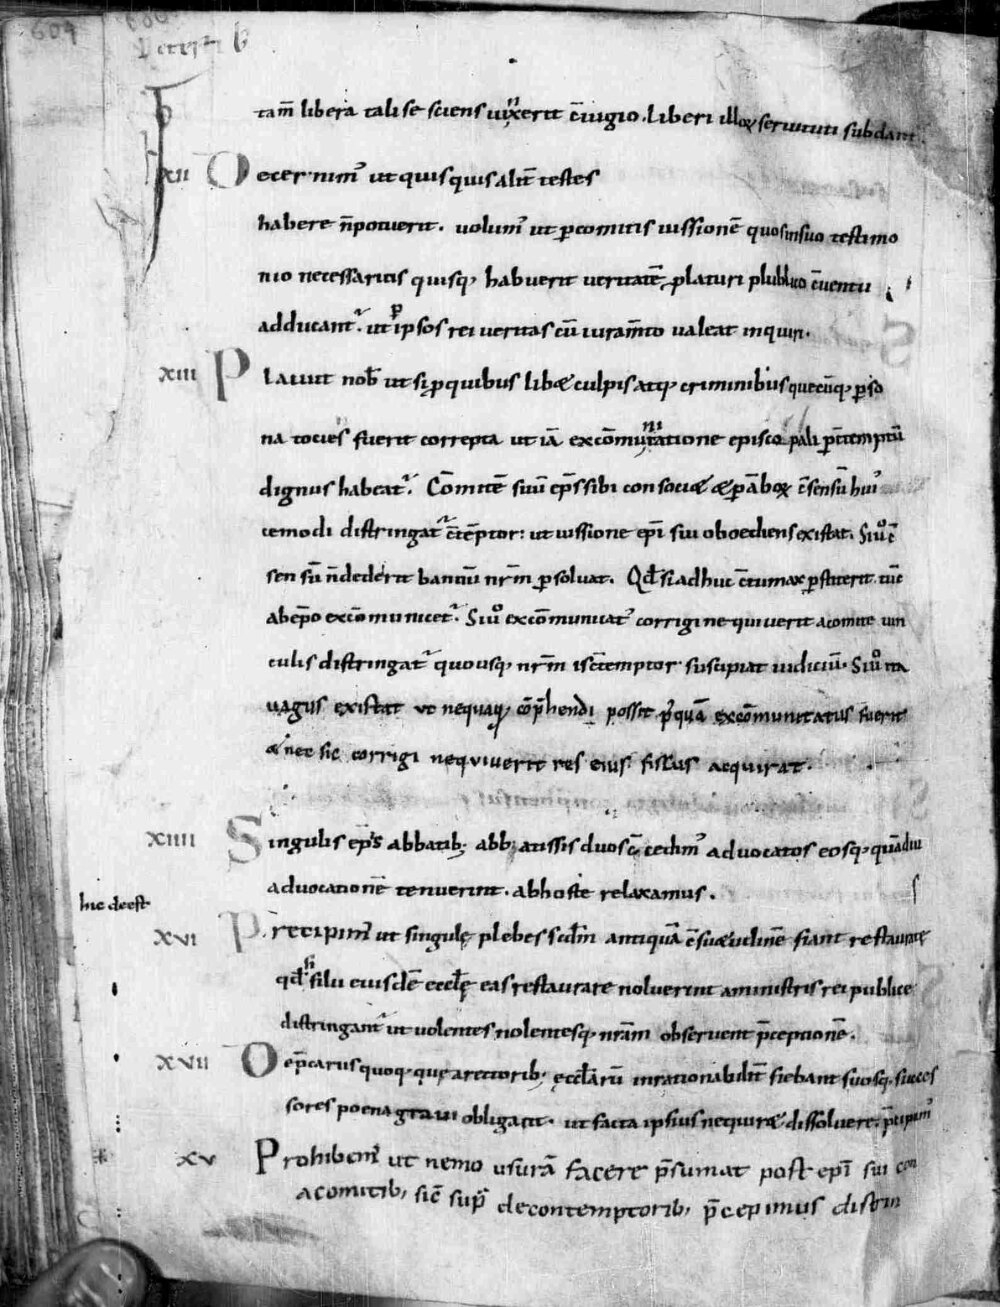 604
tam̄ libera tali se sciens iunxerit c̄iugio. liberi illoꝝ seruituti subdant᷑.
XII Decernim᷒ ut quisquis alit̄ testes
habere n̄ potuerit. volum᷒ ut ꝑ comitis iussionē quos in suo testimo
nio necessarios quisq; habuerit ueritatē platuri publico c̄uentu
adducant᷑. ut ꝑ ipsos rei ueritas cū iuram̄to ualeat inquiri.
XIII Placuit nob̄ ut si ꝓ quibuslibet culpis atq; criminibus quecūq; ꝑso
na tocies fuerit correpta ut iā excōmunicatione episcopali ꝑ c̄temptū
dignus habeat᷑. Comitē suū ep̄s sibi consociet & ꝑ āboꝝ c̄sensū hui᷒
cemodi distringat᷑ c̄tēptor: ut iussione ep̄i sui oboediens existat. Siů c̄
sensū n̄ dederit bannū nr̄m ꝑsoluat. Qd̄ si adhuc c̄tumax ꝑstiterit. tūc
ab ep̄o excōmunicet᷑. Siů excōmunicat᷒ corrigi nequiuerit a comite uin
culis distringat᷑ quousq; nr̄m is c̄temptor suscipiat iudiciū. Siů ita
uagus existat ut nequaq̄ cōp̄hendi possit p᷒quā excōmunicatus fuerit
& nec sic corrigi nequiverit res eius fiscus acquirat.
XIIII Singulis ep̄is abbatib; abbatissis duos c̄cedim᷒ advocatos eosq; quādiu
advocationē tenuerint. ab hoste relaxamus.
hic deest
XVI Precipim᷒ ut singulę plebes scdm̄ antiquā c̄suetudinē fiant restauratę
qd̄ si filii eiusdē eccl̄ę eas restaurare noluerint a ministris rei publice
distringant᷑ ut uolentes nolentesq; nr̄am observent p̄ceptionē.
XVII De p̄cariis quoq; quę a rectorib; ęccl̄arū inrationabilit̄ fiebant suosq; succes
sores poena graui obligant. ut facta ipsius nequitiæ dissoluere. p̄cipim᷒
XV Prohibem᷒ ut nemo usurā facere p̄sumat post ep̄i sui con
a comitib; sic̄ sup᷒ de contemptorib; p̄cepimus distrin